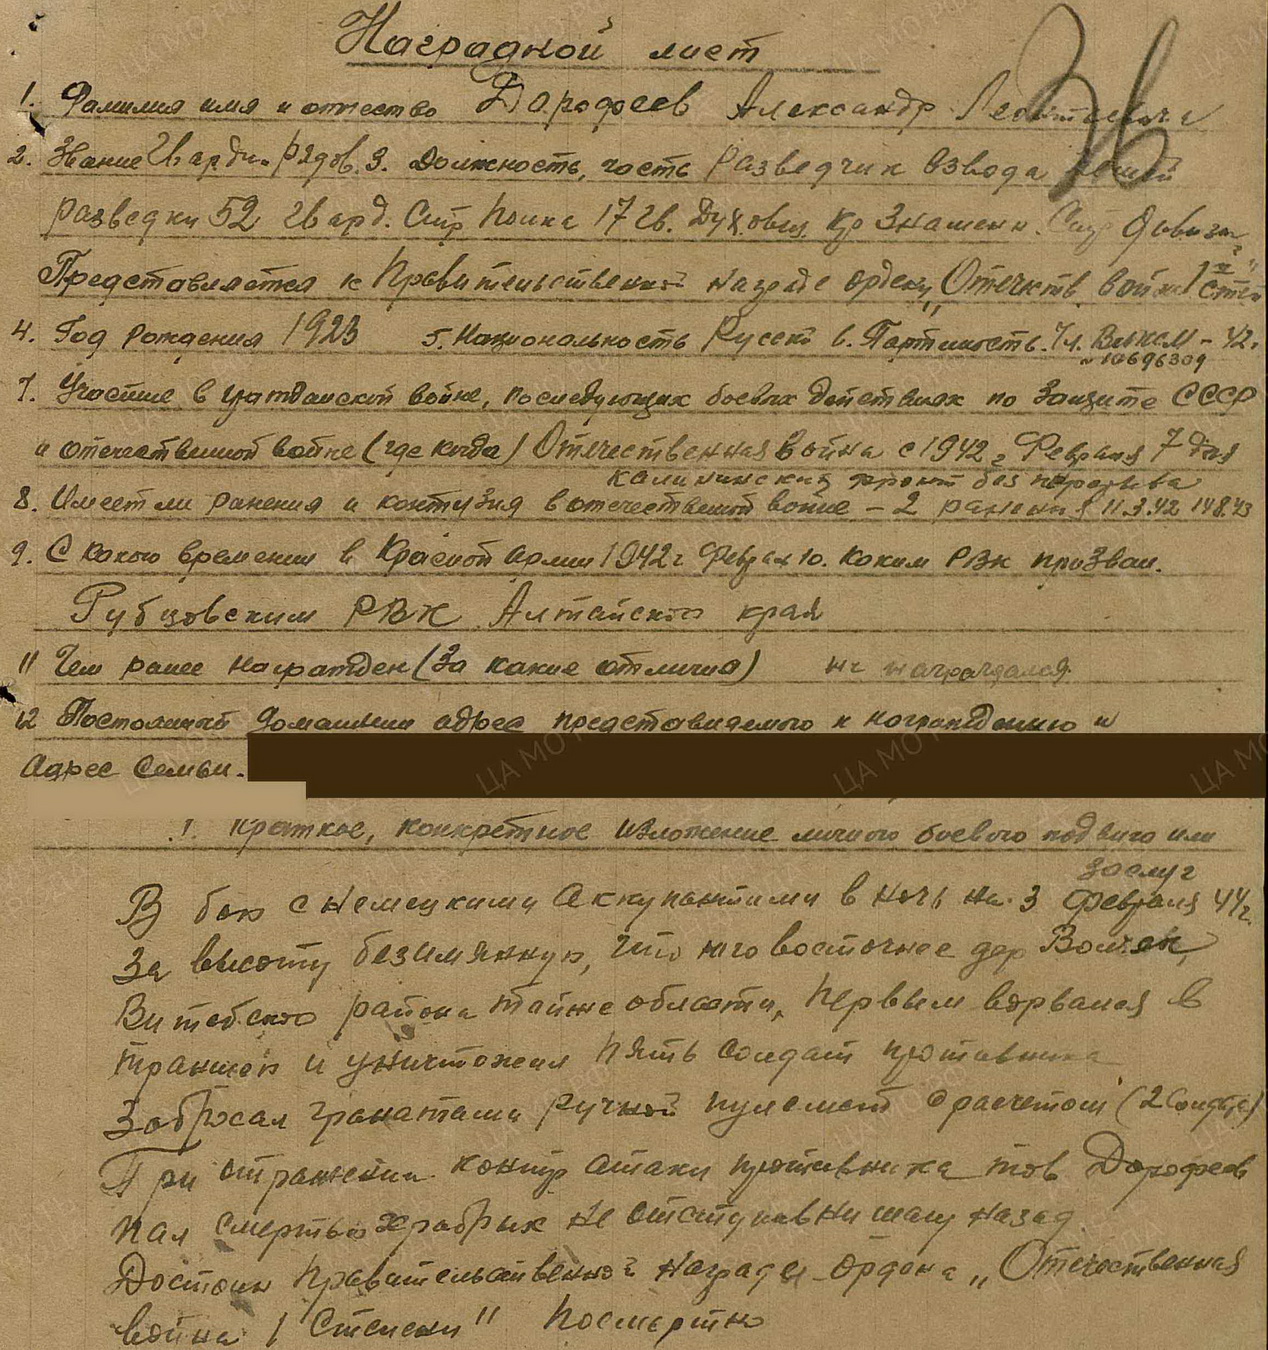 Наградной лист
36
1. Фамилия имя и отчество Дарофеев Александр
2. Звание Гварди. Рядов. 3. Должность, часть Разведчик взвода пешей
разведки 52 Гвард. Стр Полка 17 Гв. Духовщ. Кр Знаменн. Стр Дивизи
Представляется к Правительственной награде ордену „Отечеств. война 1 степ
II
4. Год рождения 1923 5. Национальность Русск 6. Партийность. Чл. ВЛКСМ - 42.
№ 10696309
7. Участие в гражданской войне, последующих боевых действиях по защите СССР
и отечественной войне (где когда) Отечественная война с 1942 г Февраля 7 дня
калининский фронт без перерыва
8. Имеет ли ранения и контузия в отечественной войне - 2 ранения 11.3.42 14.8.43
9. С какого времени в Красной армии 1942 г Феврал 10. Каким РВК призван.
Рубцовским РВК Алтайского края
11 Чем ранее награжден (за какие отличия) не награждался
12 Постоянный домашний адрес представляемого к награждению и
Адрес Семьи.
1. Краткое, конкретное изложение личного боевого подвига или
заслуг
В бою с немецкими аккупантами в ночь на 3 Февраля 44 г.
За высоту безимянную, что юго восточнее дер Волчек,
Витебского района тойже области, первым ворвался в
траншею и уничтожил пять солдат противника
Забросал гранатами ручной пулемет с расчетом (2 Солдата)
При отражении контр атаки противника тов Дорофеев
пал смертью храбрых не отступив ни шагу назад.
Достоин Правительственной награды ордена „Отечественная
война 1 Степени" посмертно